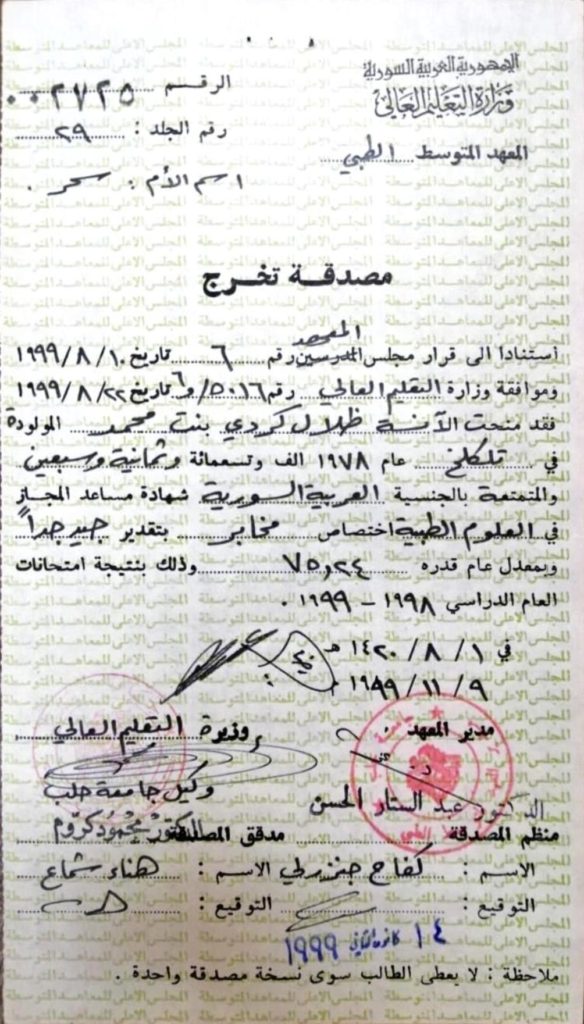 الجمهورية العربية السورية
وزارة التعليم العالي
المعهد المتوسط الطبي
الرقم ٠٠٢٧٢٥
رقم الجلد : ٢٩
اسم الأم : سحر .
مصدقة تخرج
المعهد
أستنادا الى قرار مجلس المدرسين رقم ٦ تاريخ ١٩٩٩/٨/١٠
وموافقة وزارة التعليم العالي رقم ٥٠١٦/و٦ تاريخ ١٩٩٩/٨/٢٢
فقد منحت الآنسة ظلال كردي بنت محمد المولودة
في تلكلخ عام ١٩٧٨ الف وتسعمائة وثمانية وسبعين
والمتمتعة بالجنسية العربية السورية شهادة مساعد المجاز
في العلوم الطبية اختصاص مخابر بتقدير جيد جداً
وبمعدل عام قدره ٧٥,٢٤ وذلك بنتيجة امتحانات
العام الدراسي ١٩٩٨ - ١٩٩٩ .
في ١ / ٨ / ١٤٢٠ هـ
٩ / ١١ / ١٩٩٩
مدير المعهد
وزيرة التعليم العالي
وكيل جامعة حلب
الدكتور عبد الستار الحسن
الدكتور محمود كروم
منظم المصدقة
مدقق المصدقة
الاسم : كفاح جنزرلي
الاسم : هناء شماع
التوقيع :
التوقيع :
١٤ كانون الثاني ١٩٩٩
ملاحظة : لا يعطى الطالب سوى نسخة مصدقة واحدة .